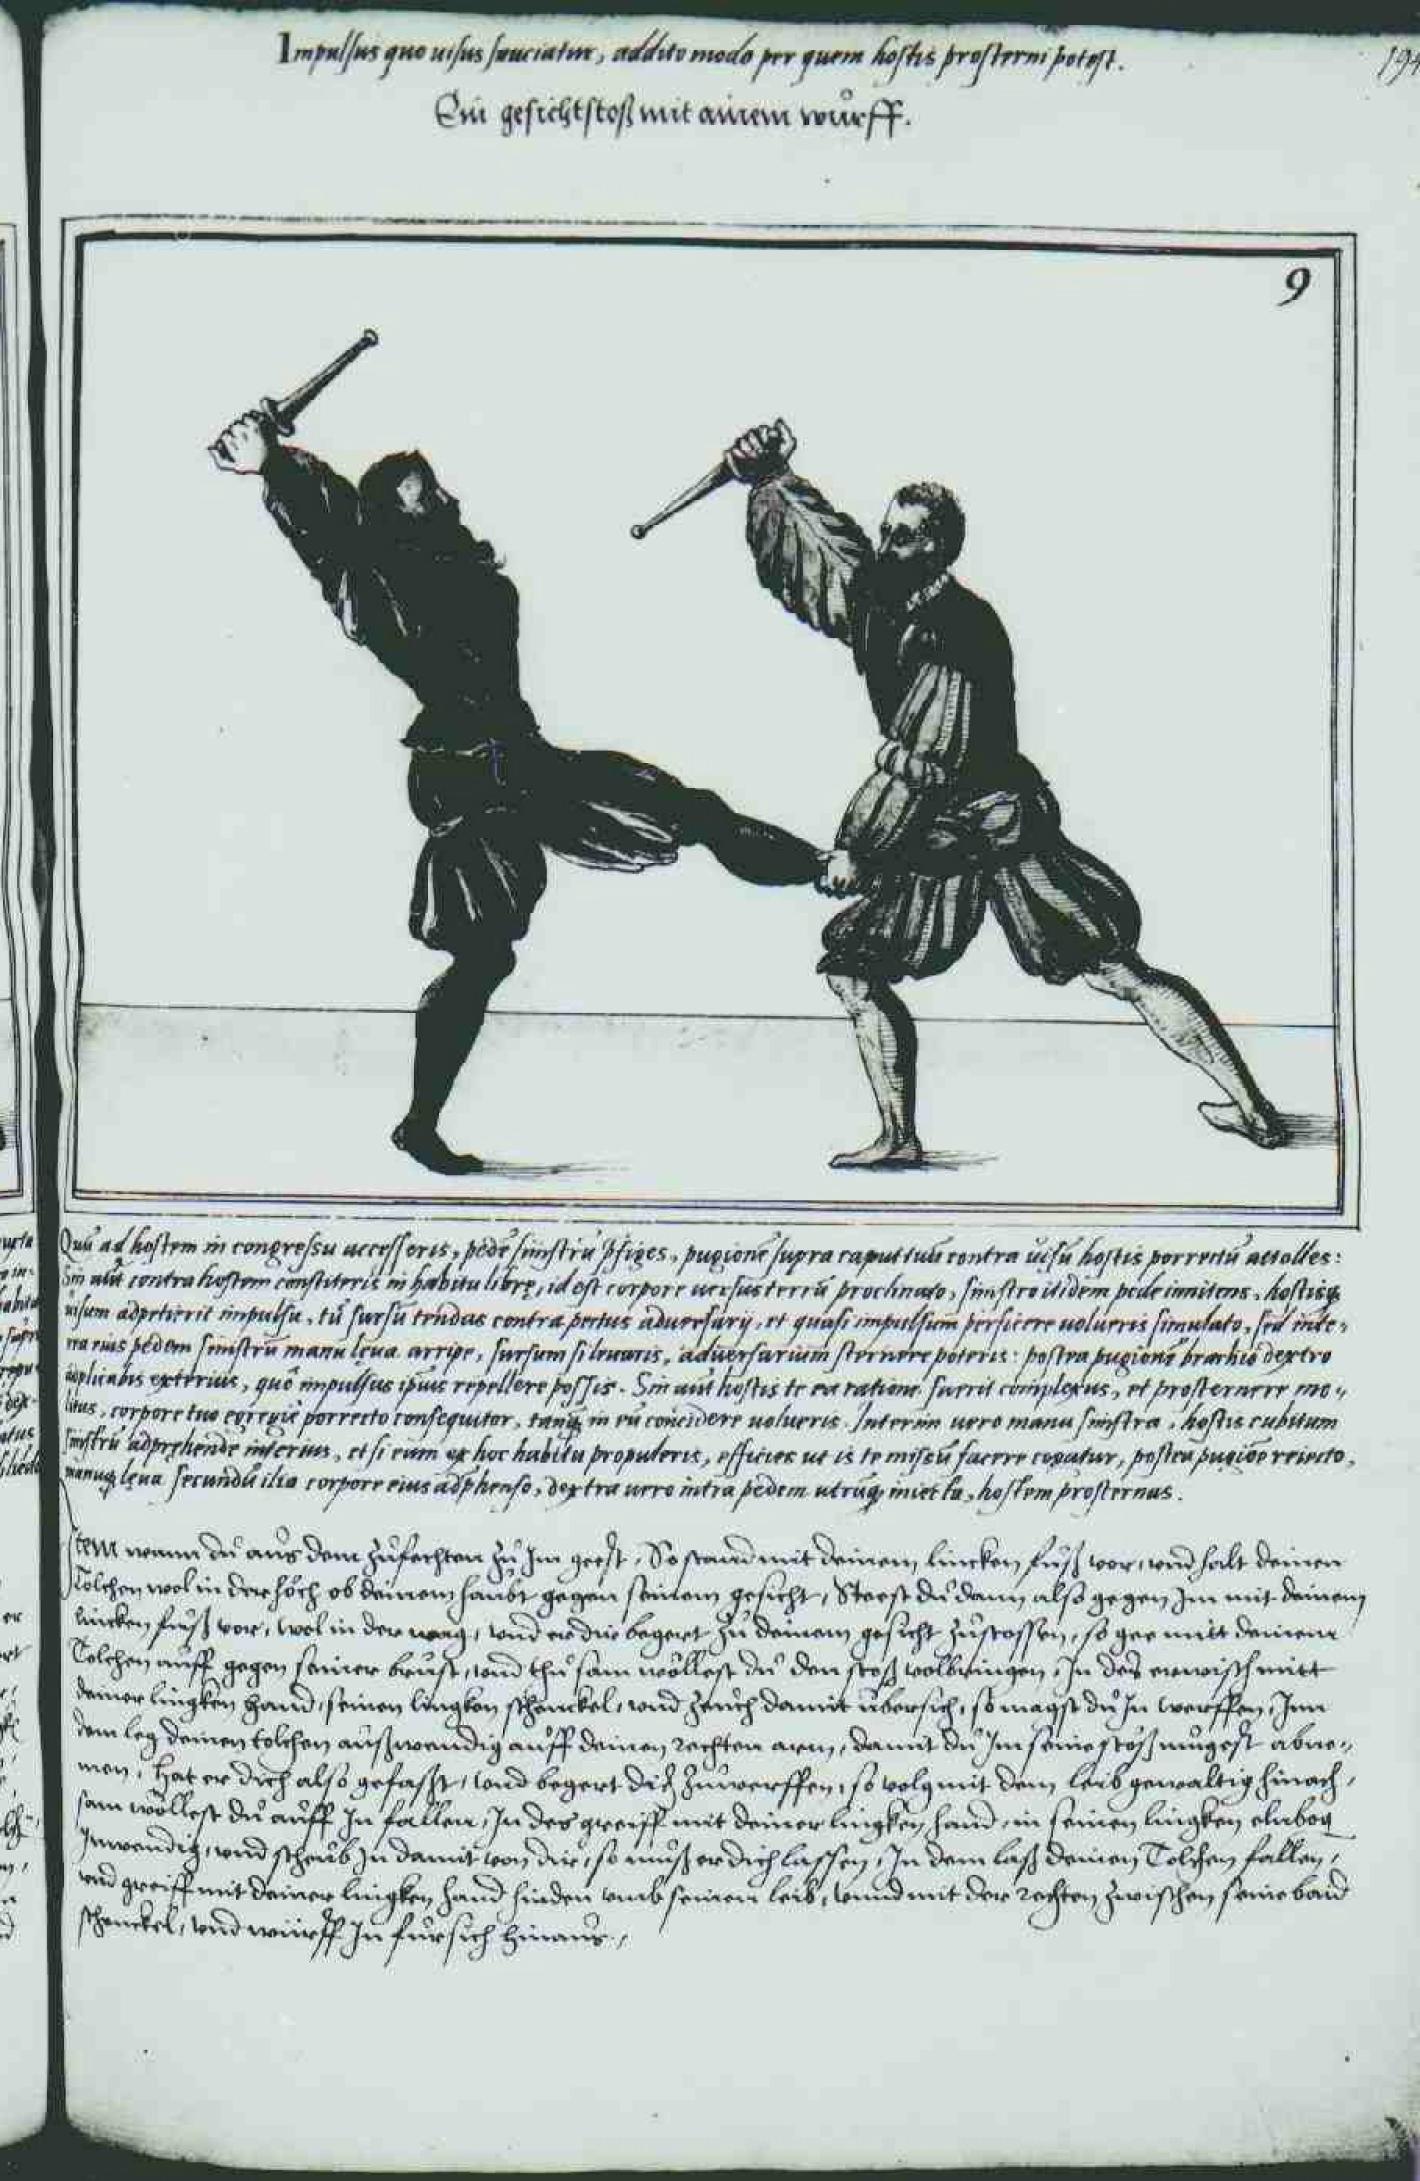 Impulsus quo uisus sauciatur, addito modo per quem hostis prosterni potest.
194
Ein gesichtstoß mit ainem wurff.
9
Quũ ad hostem in congressu accesseris, pedẽ sinistrũ p̃figes, pugionẽ supra caput tuũ contra uisũ hostis porrectũ attolles:
Sin aũt contra hostem constiteris in habitu librę, id est corpore uersus terrã proclinato, sinistro itidem pede innitens, hostisq
uisum adpetierit impulsu, tũ sursũ tendas contra pectus aduersarij, et quasi impulsum perficere uolueris simulato, sed inte-
rea eius pedem sinistrũ manu leua arripe, sursum si leuaris, aduersarium sternere poteris: postea pugionẽ brachio dextro
adplicabis exterius, quo impulsus ipsius repellere possis. Sin aũt hostis te ea ratione fuerit complexus, et prosternere mo-
litus, corpore tuo egregie porrecto consequitor, tanq̃ in eũ concidere uolueris. Interim uero manu sinistra, hostis cubitum
sinistrũ adprehende interius, et si eum ex hoc habitu propuleris, efficies ut is te missũ facere cogatur, postea pugiõe reiecto,
manuq leua secundũ ilia corpore eius adphenso, dextra uero intra pedem utrũq iniecta, hostem prosternas.
Item wann du aus dem zufechten zu Im geest, So stand mit deinem lincken fuß vor, vnd halt deinen
Tolchen wol in der höch ob deinem haubt gegen seinem gesicht, Steest du dann also gegen Im mit deinem
lincken fuß vor, wol in der wag, vnd er dir begert zu deinem gesicht zustossen, so gee mitt deinem
Tolchen auff gegen seiner brust, vnd thu sam wöllest du den stoß volbringen, In des erwisch mitt
deiner lingken hand, seinen lingken schenckel, vnd zeuch damit übersich, so magst du In werffen, Inn
dem leg deinen tolchen außwendig auff deinen rechten arm, damit du Im seine stöß mügest abne-
men, Hat er dich also gefaßt, vnd begert dich zuwerffen, so volg mit dem leib gewaltig hinach,
sam wöllest du auff In fallen, In des greiff mit deiner lingken hand, in seinen lingken elnbog
Inwendig, vnd scheub In damit von dir, so muß er dich lassen, In dem laß deinen Tolchen fallen,
vnd greiff mit deiner lingken hand hinden vmb seinen leib, vnnd mit der rechten zwischen seine baid
schenckel, vnd würff In fürsich hinaus,